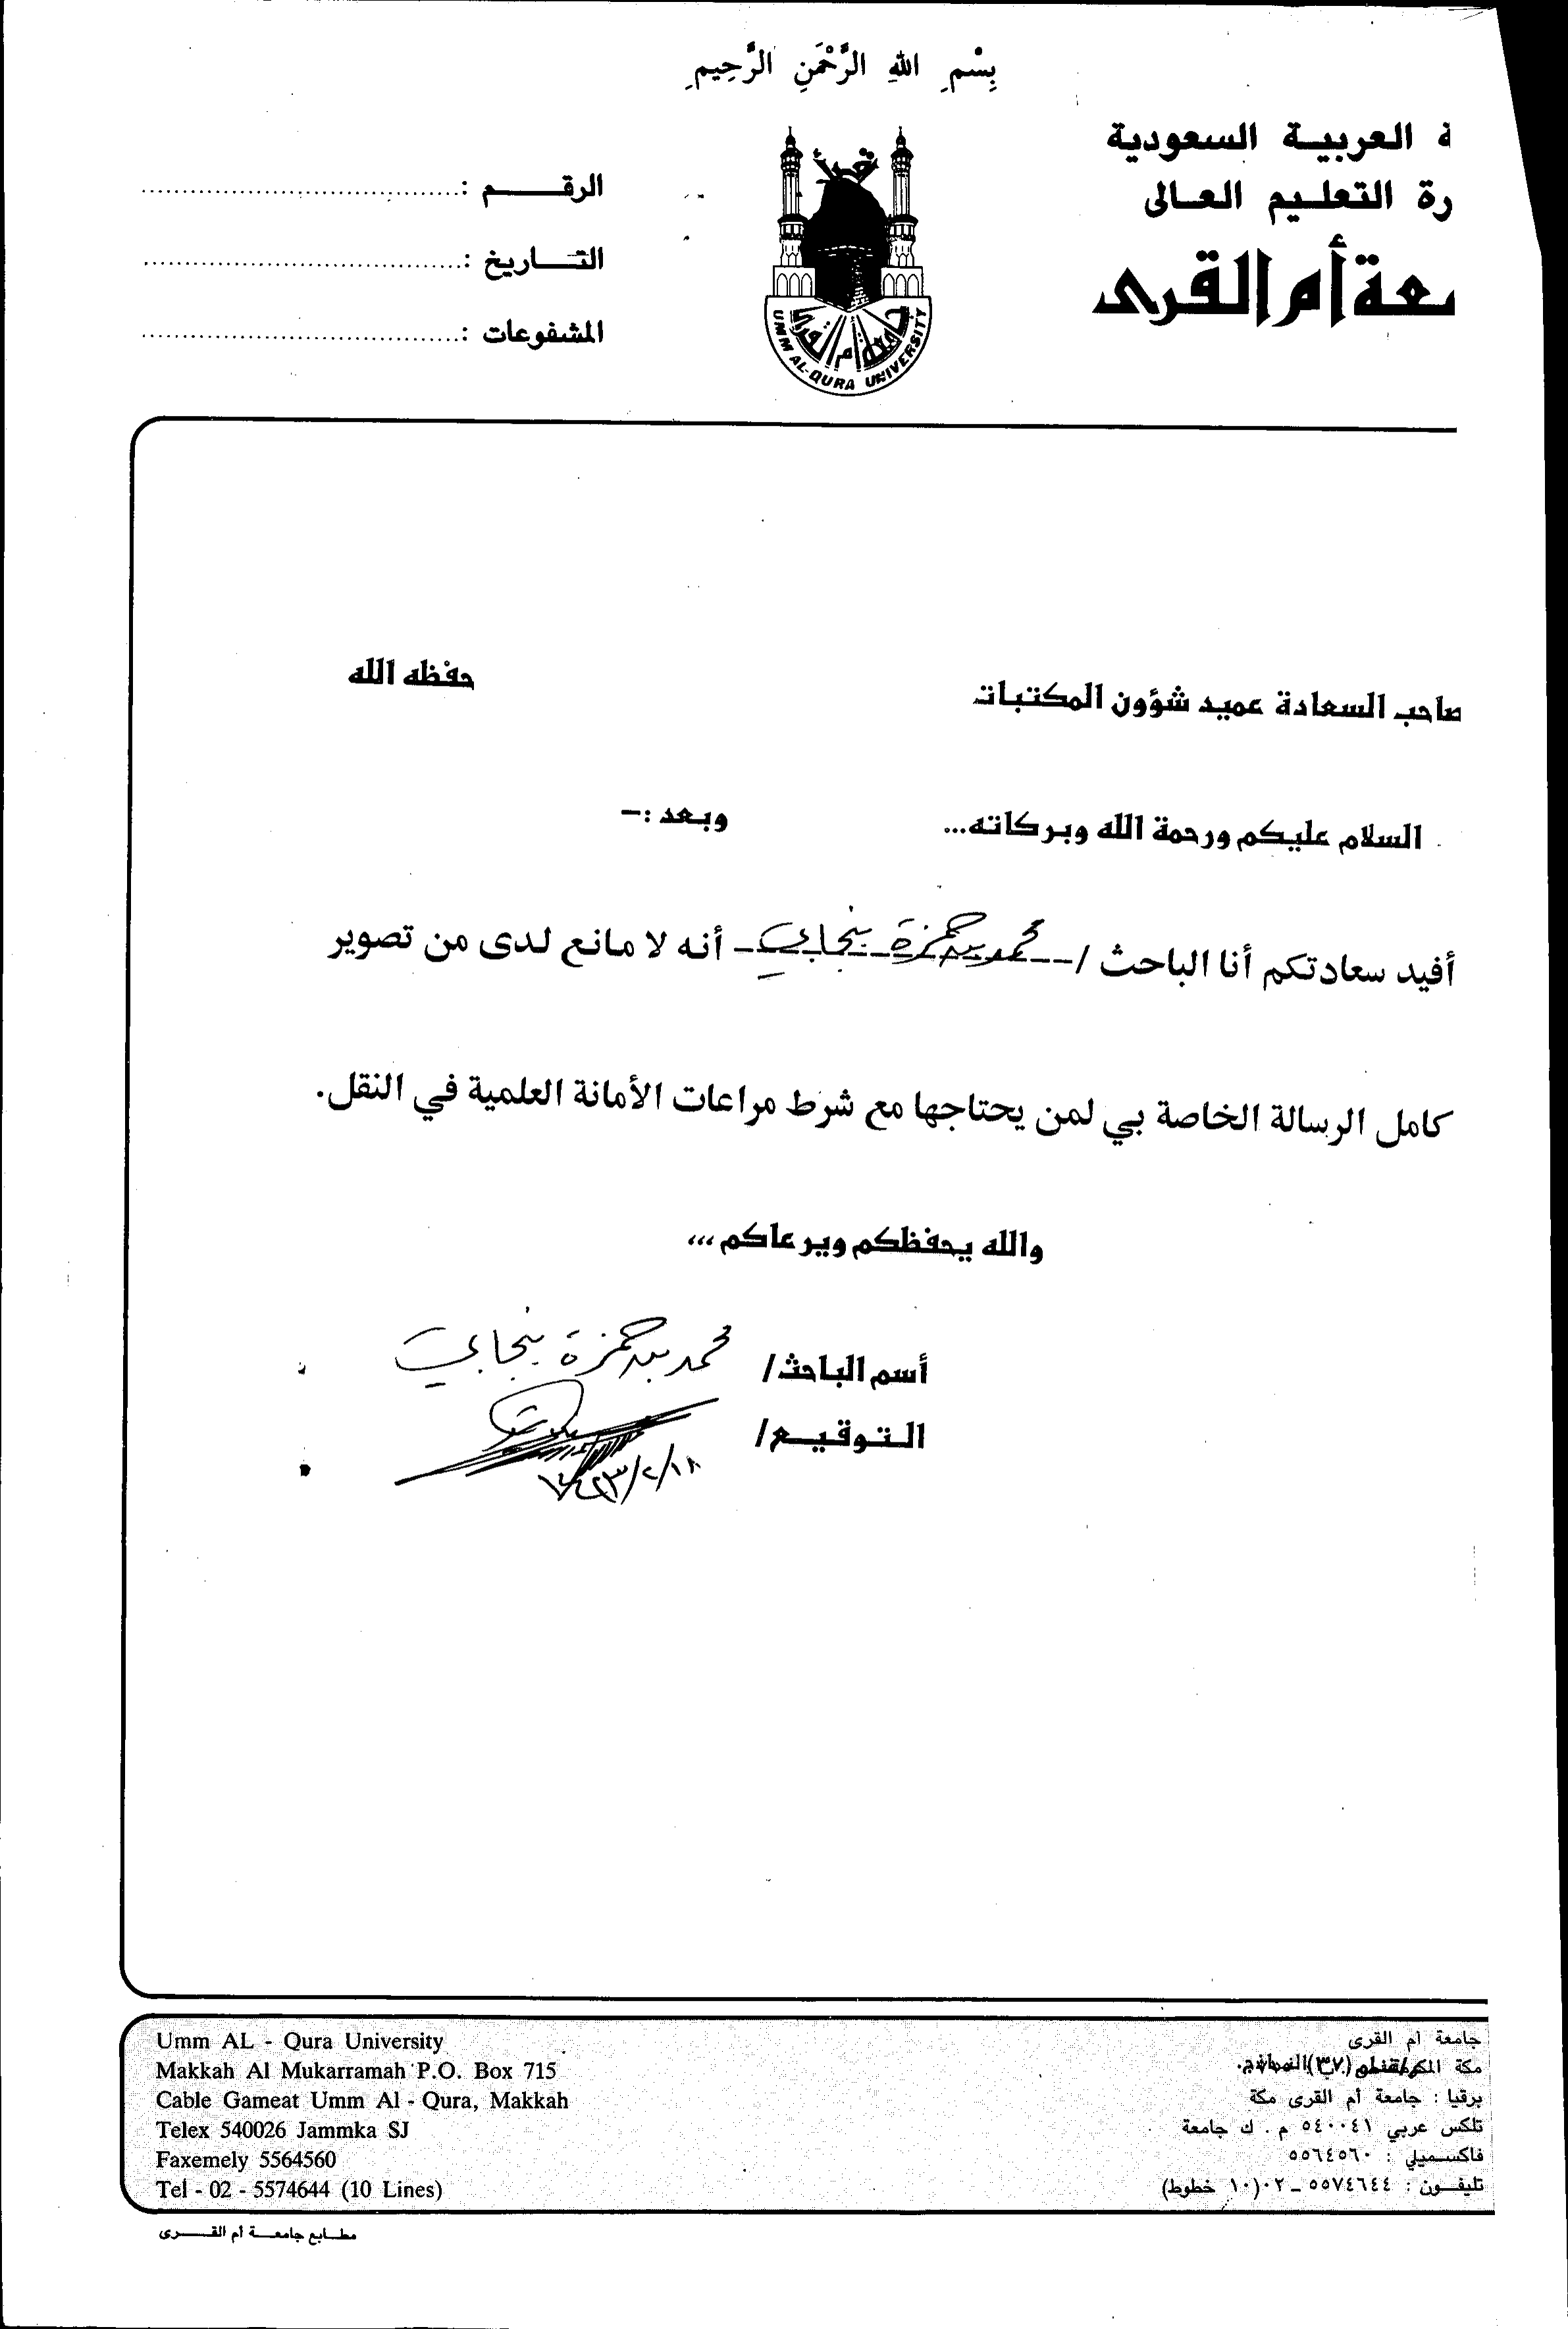 بِسْمِ اللهِ الرَّحْمَنِ الرَّحِيمِ
ة العربية السعودية
رة التعليم العالى
عة أم القرى
الرقم :
التاريخ :
المشفوعات :
جامعة أم القرى
UMM AL-QURA UNIVERSITY
صاحب السعادة عميد شؤون المكتبات حفظه الله
السلام عليكم ورحمة الله وبركاته... وبعد :-
أفيد سعادتكم أنا الباحث / محمد بن حمزة بنجابي أنه لا مانع لدى من تصوير
كامل الرسالة الخاصة بي لمن يحتاجها مع شرط مراعات الأمانة العلمية في النقل.
والله يحفظكم ويرعاكم ,,,
أسم الباحث/ محمد بن حمزة بنجابي
التوقيع/
١٤٢٣/٢/١٨
Umm AL - Qura University
Makkah Al Mukarramah P.O. Box 715
Cable Gameat Umm Al - Qura, Makkah
Telex 540026 Jammka SJ
Faxemely 5564560
Tel - 02 - 5574644 (10 Lines)
جامعة أم القرى
مكة
برقيا : جامعة أم القرى مكة
تلكس عربي ٥٤٠٠٤١ م . ك جامعة
فاكسميلي : ٥٥٦٤٥٦٠
تليفون : ٥٥٧٤٦٤٤ - ٠٢ (١٠ خطوط)
مطابع جامعة أم القرى